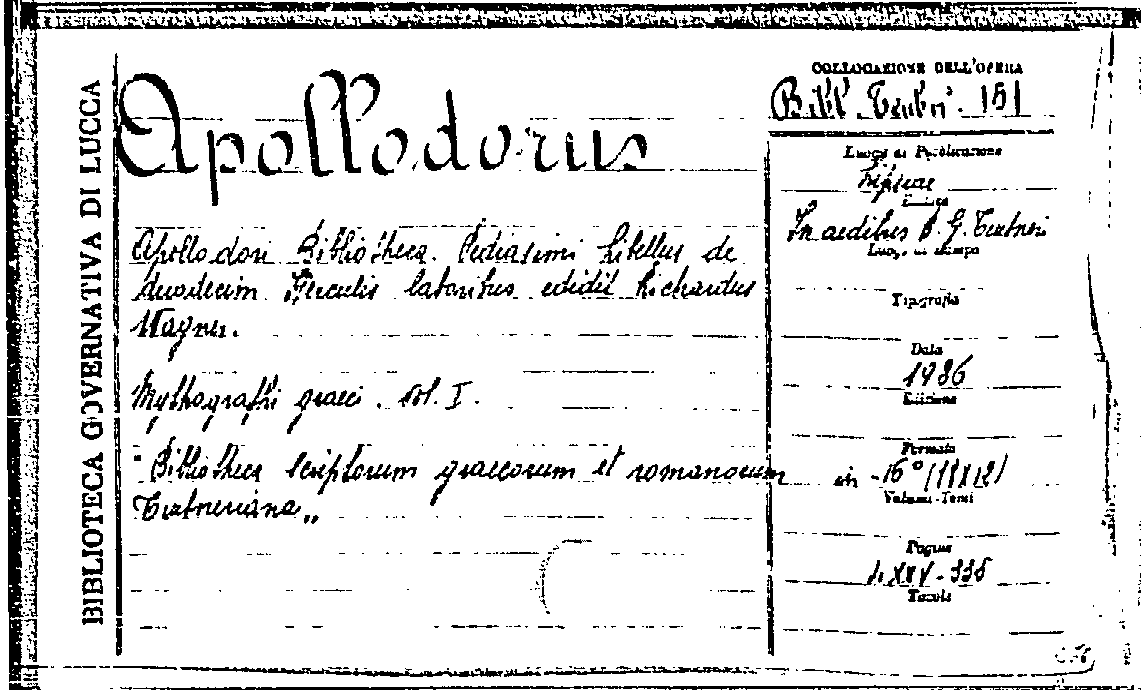 BIBLIOTECA GOVERNATIVA DI LUCCA
Apollodorus
Apollodori Bibliotheca. Pediasimi libellus de
duodecim Herculis laboribus edidit Richardus
Wagner.
Mythographi graeci. vol. I.
"Bibliotheca scriptorum graecorum et romanorum
Teubneriana„
COLLOCAZIONE DELL'OPERA
Bibl. Teubn. 151
Luogo di Pubblicazione
Lipsiae
In aedibus B. G. Teubneri
Luogo di stampa
Tipografia
Data
Edizione
Formato
in -16°
Volumi-Tomi
Pagine
Tavole